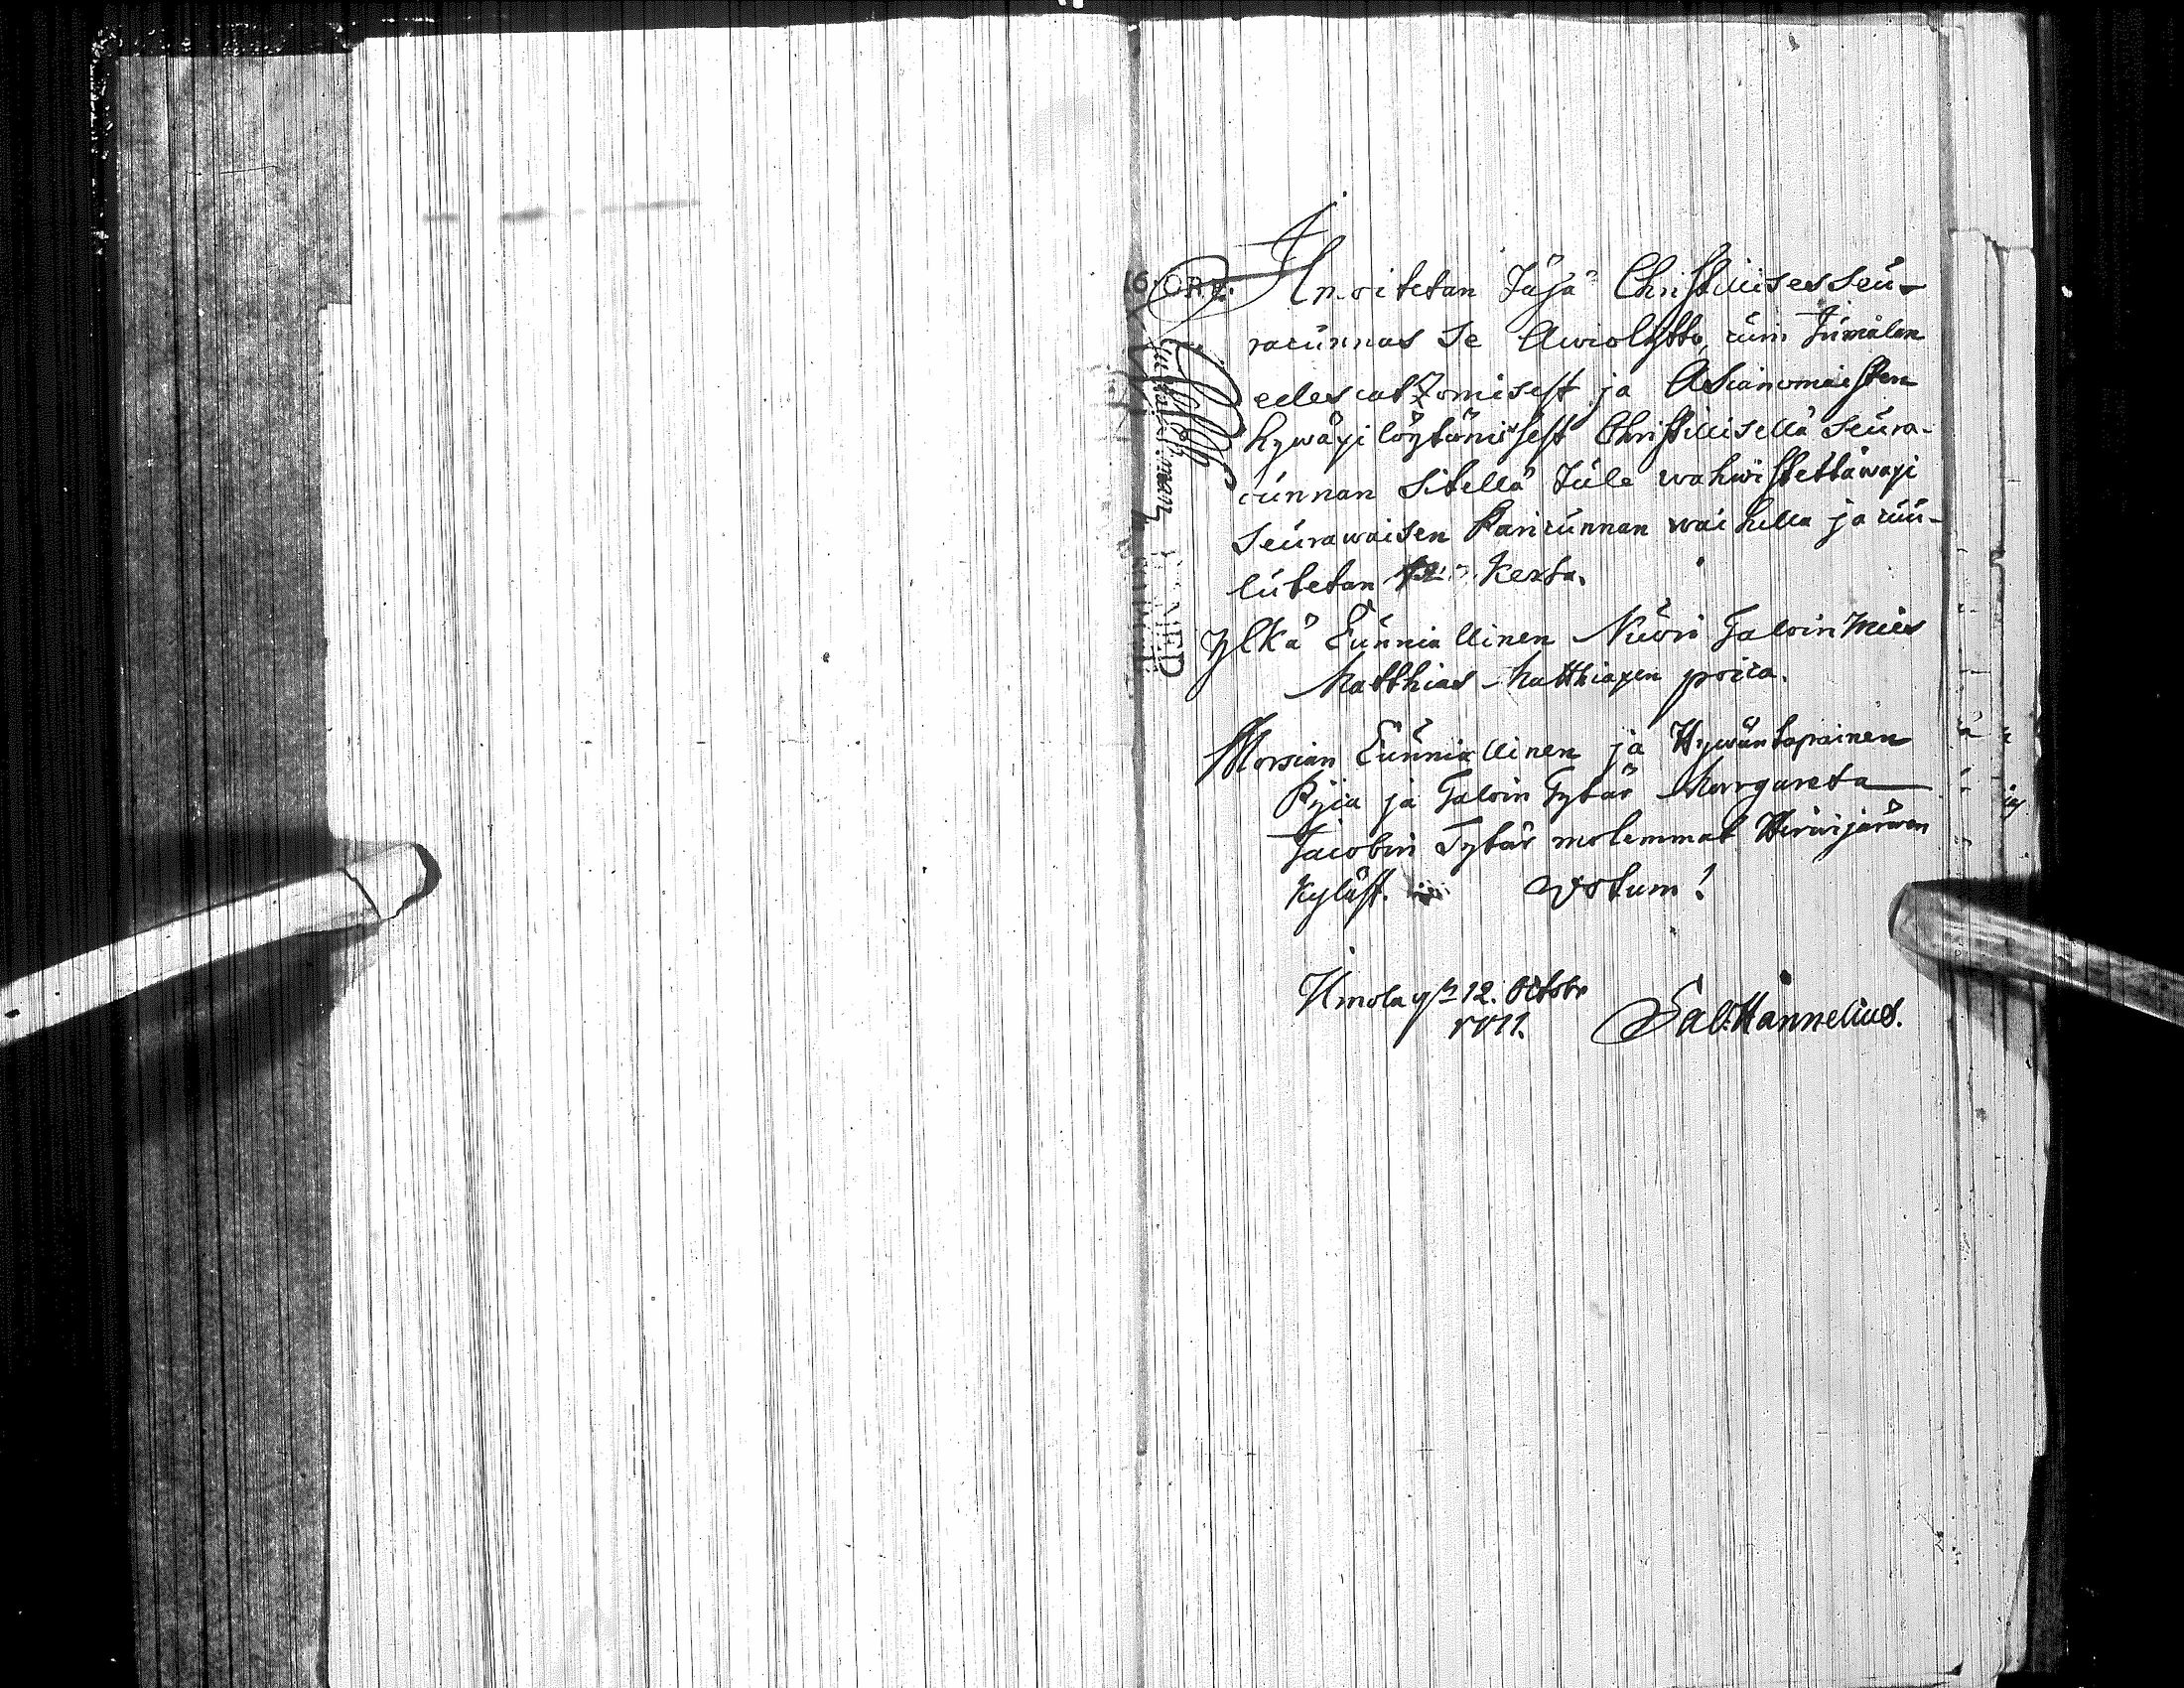 Ilmoitetan Täsä Christillises seu-
racunnas se Awioliitto, cuin Jumalan
edescatzomisest ja Asianomaisten
hywäxi löytämisest Christillisellä seura-
cunnan sitellä tule wahwistettäwaxi
seurawaisen Paricunnan waihella ja cuu-
lutetan kerta.
Ylkä Cunniallinen Nuori Taloin mies
Matthias Matthiaxen poica.
Morsian Cunniallinen ja Hywäntapainen
Pijca ja Taloin Tytär Margareta
Jacobin Tytär molemmat Hirwijärwen
Kyläst. Votum!
Ilmola 12. Octobr
Sal. Hannelius.